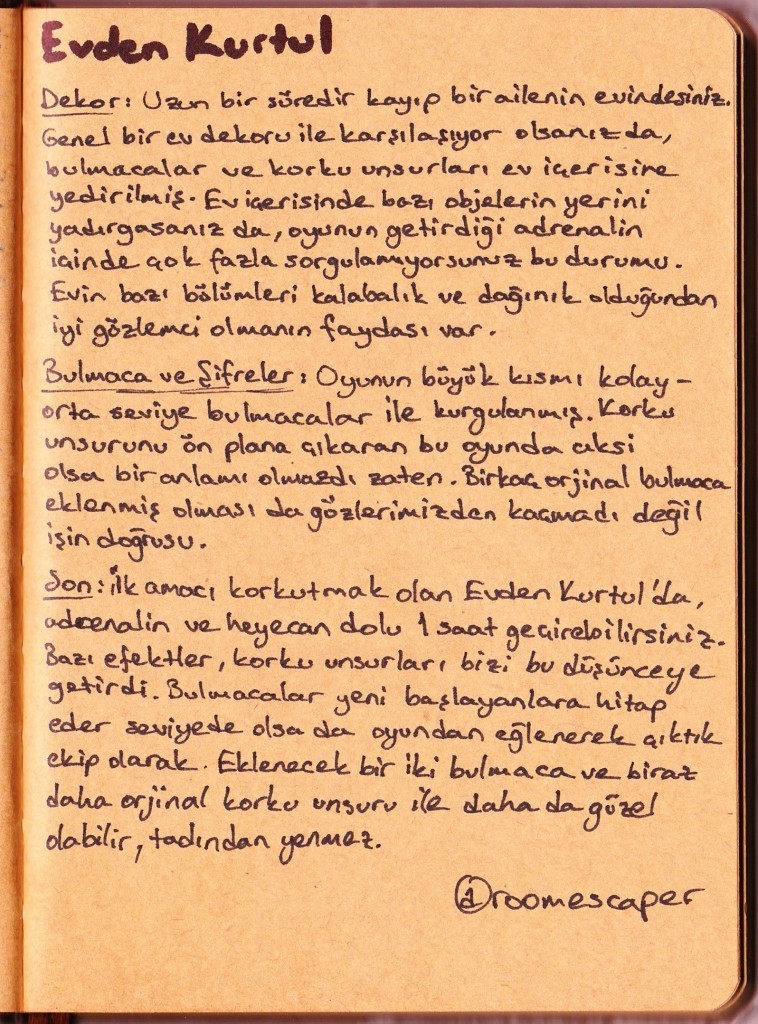 Evden Kurtul
Dekor: Uzun bir süredir kayıp bir ailenin evindesiniz.
Genel bir ev dekoru ile karşılaşıyor olsanız da,
bulmacalar ve korku unsurları ev içerisine
yedirilmiş. Ev içerisinde bazı objelerin yerini
yadırgasanız da, oyunun getirdiği adrenalin
içinde çok fazla sorgulamıyorsunuz bu durumu.
Evin bazı bölümleri kalabalık ve dağınık olduğundan
iyi gözlemci olmanın faydası var.
Bulmaca ve Şifreler: Oyunun büyük kısmı kolay-
orta seviye bulmacalar ile kurgulanmış. Korku
unsurunu ön plana çıkaran bu oyunda aksi
olsa bir anlamı olmazdı zaten. Birkaç orjinal bulmaca
eklenmiş olması da gözlerimizden kaçmadı değil
işin doğrusu.
Son: İlk amacı korkutmak olan Evden Kurtul'da,
adrenalin ve heyecan dolu 1 saat geçirebilirsiniz.
Bazı efektler, korku unsurları bizi bu düşünceye
getirdi. Bulmacalar yeni başlayanlara hitap
eder seviyede olsa da oyundan eğlenerek çıktık
ekip olarak. Eklenecek bir iki bulmaca ve biraz
daha orjinal korku unsuru ile daha da güzel
olabilir, tadından yenmez.
@1roomescaper